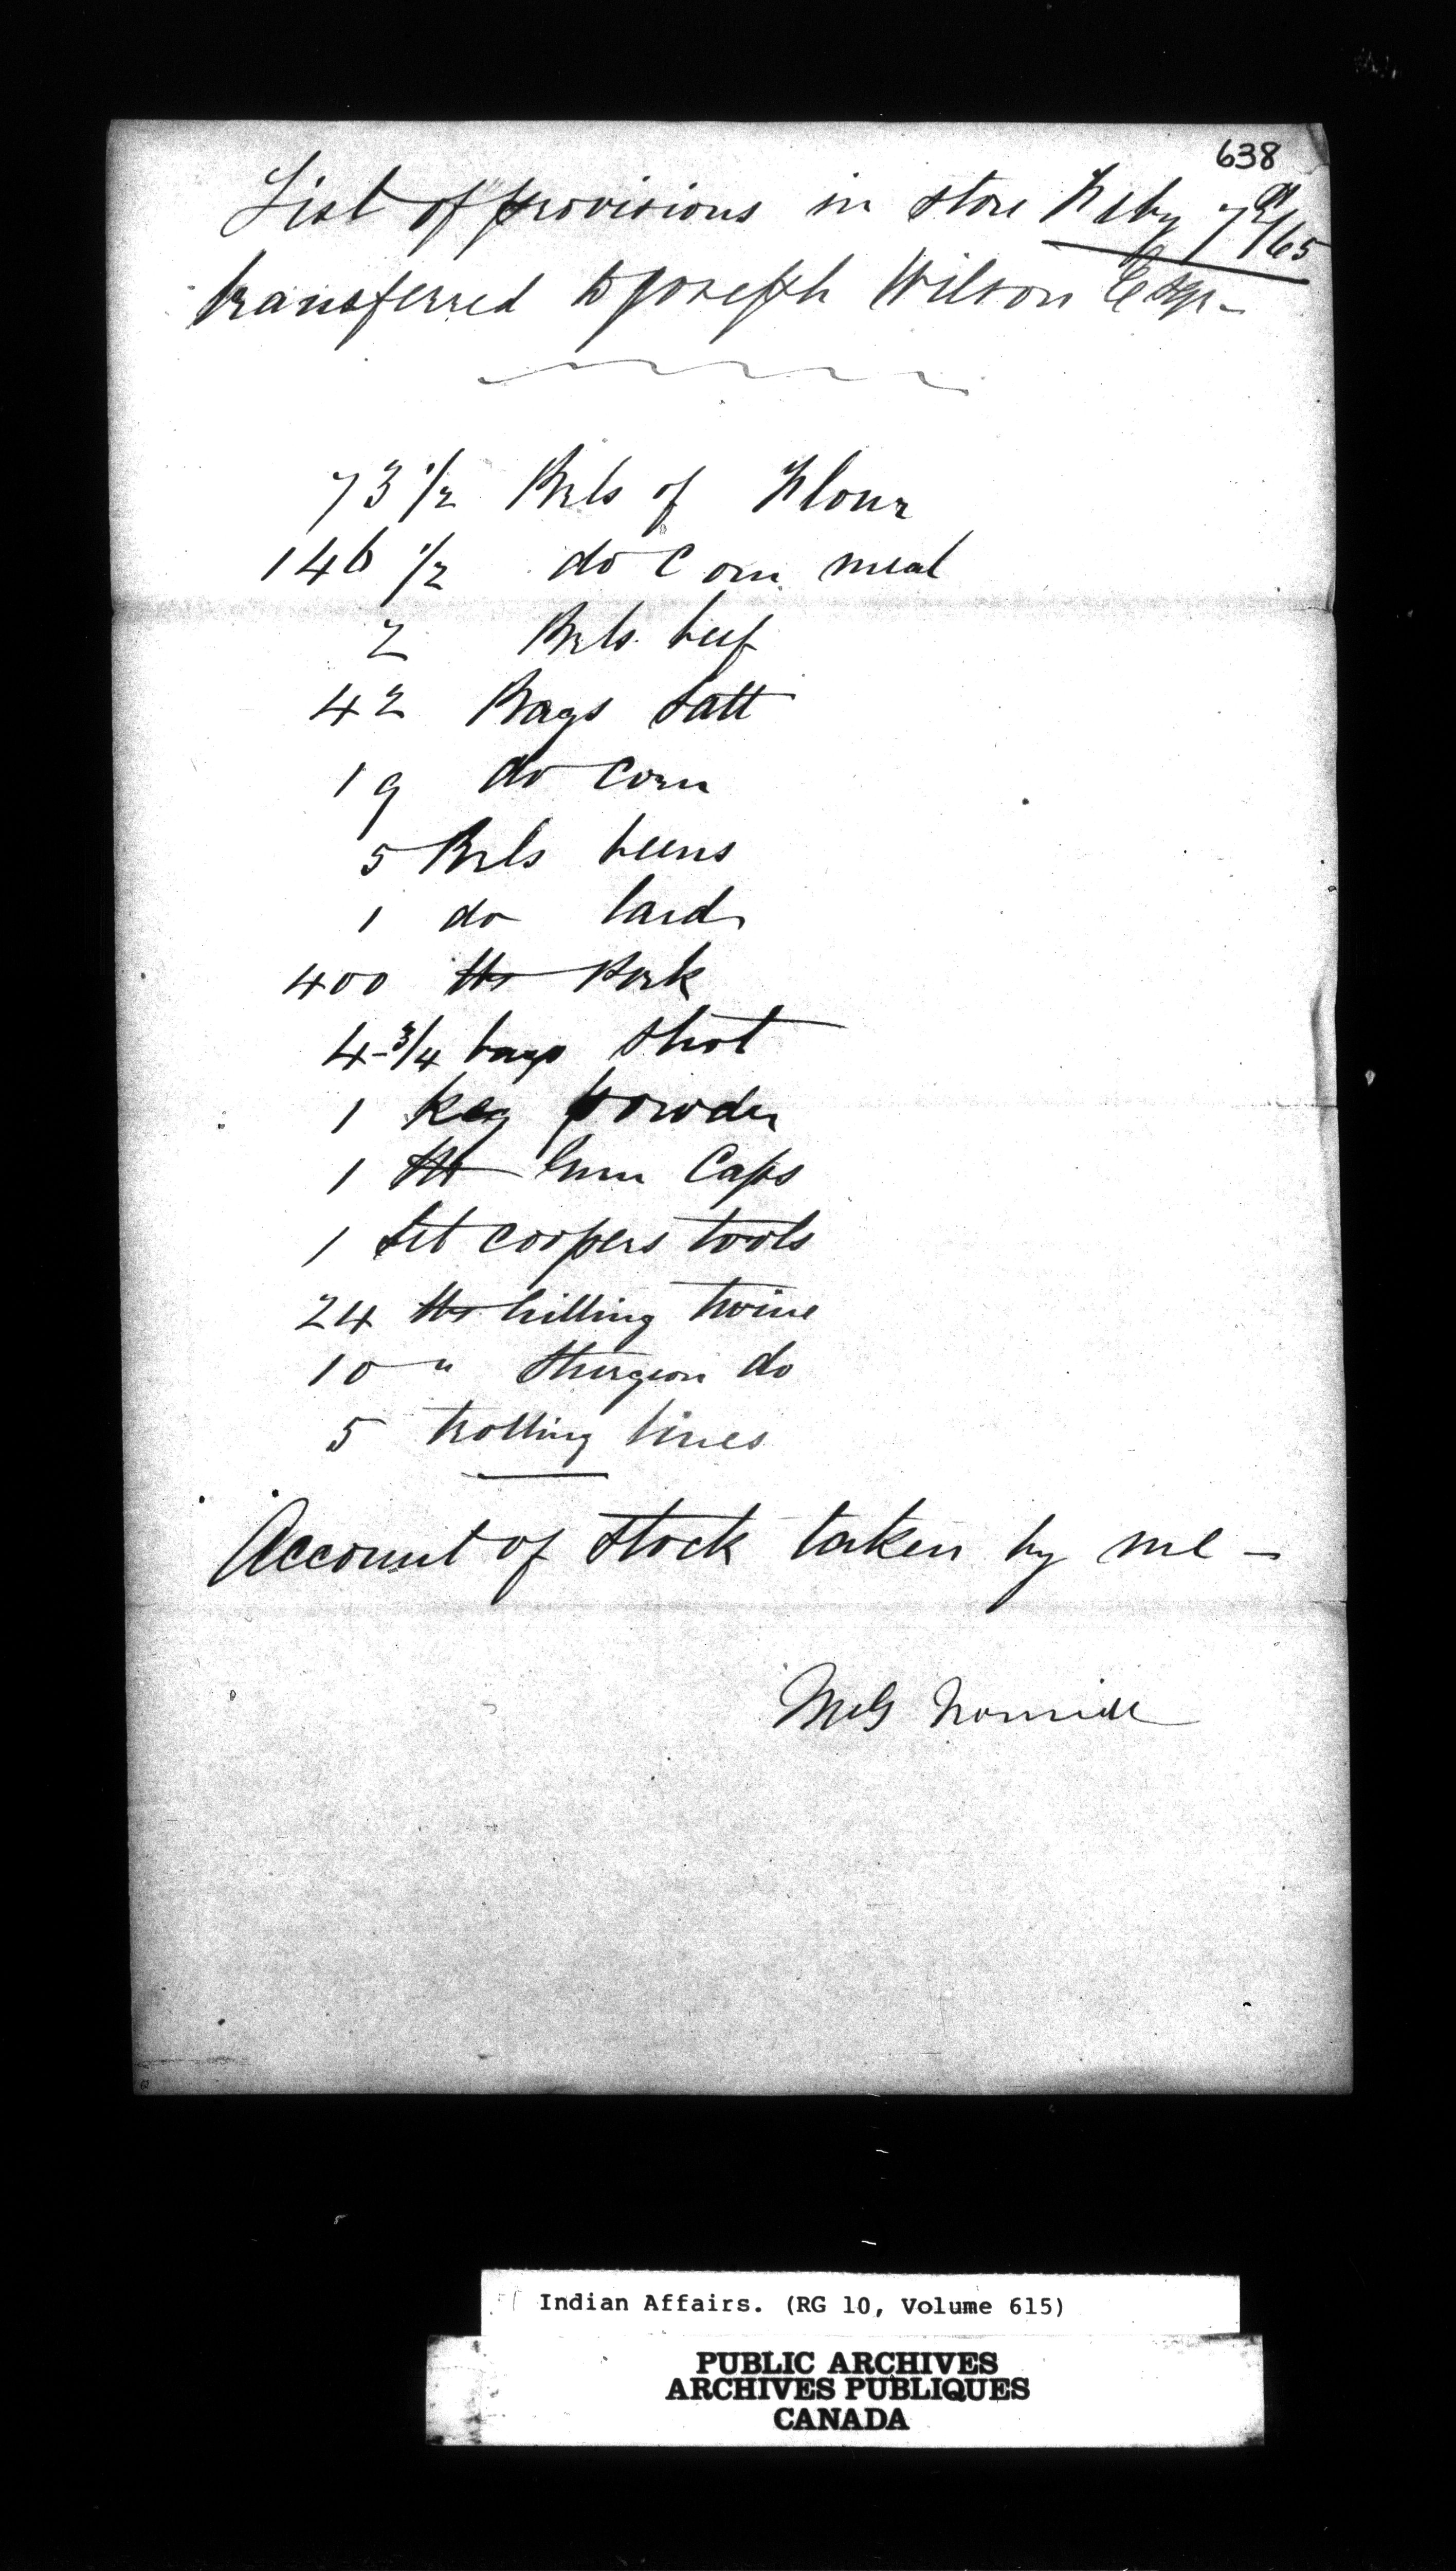 638
List of provisions in store Feby 7th/65
transferred to Joseph Wilson Esqr-
73 1/2 Brls of Flour
146 1/2 do Corn meal
2 Brls beef
42 Bags Salt
19 do Corn
5 Brls beens
1 do lard
400 lbs Pork
4-3/4 bags Shot
1 keg powder
1 lb Gun Caps
1 Set coopers tools
24 lbs gilling twine
10 " Sturgeon do
5 trolling lines
Account of Stock taken by me -
Indian Affairs. (RG 10, Volume 615)
PUBLIC ARCHIVES
ARCHIVES PUBLIQUES
CANADA